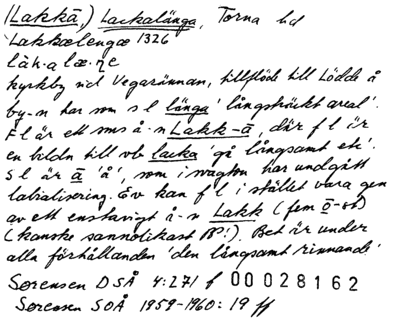 (Lakkā,) Lackalänga, Torna hd
Lakkælengæ 1326
làk·a læ·ŋe
kyrkby vid Vegarännan, tillflöde till Lödde å
by-n har som s l länga 'långsträckt areal'.
F l är ett sms å-n Lakk-ā, där f l är
en bildn till vb lacka 'gå långsamt etc'.
S l är ā 'å', som i svagton har undgått
labialisering. Ev kan f l i stället vara gen
av ett enstavigt å-n Lakk (fem ō-st)
(kanske sannolikast BP!). Bet är under
alla förhållanden 'den långsamt rinnande'
Sørensen DSÅ 4:271 f 00028162
Sørensen SOÅ 1959-1960:19 ff